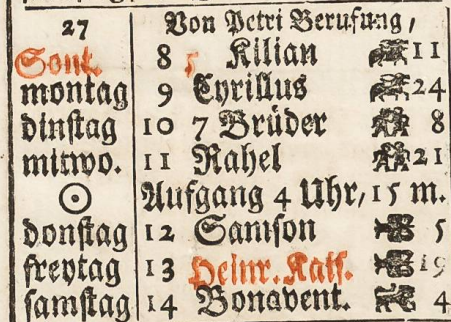 27 Von Petri Berufung,
Sont. 8 5 Kilian 11
montag 9 Cyrillus 24
dinstag 10 7 Brüder 8
mitwo. 11 Rahel 21
☉ Aufgang 4 Uhr, 15 m.
donstag 12 Samson 5
freytag 13 Heinr. Kais. 19
samstag 14 Bonavent. 4